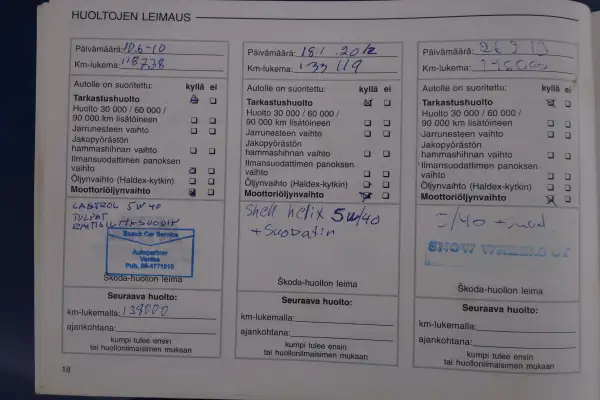 HUOLTOJEN LEIMAUS
Päivämäärä: 10.6-10
Km-lukema: 118738
Autolle on suoritettu: kyllä ei
Tarkastushuolto
Huolto 30 000 / 60 000 /
90 000 km lisätöineen
Jarrunesteen vaihto
Jakopyörästön
hammashihnan vaihto
Ilmansuodattimen panoksen
vaihto
Öljynvaihto (Haldex-kytkin)
Moottoriöljynvaihto
CASTROL 5W40
TULPAT
Bosch Car Service
Autopartner
Vantaa
Puh. 09-4771010
Škoda-huollon leima
Seuraava huolto:
km-lukemalla: 134000
ajankohtana:
kumpi tulee ensin
tai huollonilmaisimen mukaan
18
Päivämäärä: 18.1.2012
Km-lukema: 133 119
Autolle on suoritettu: kyllä ei
Tarkastushuolto
Huolto 30 000 / 60 000 /
90 000 km lisätöineen
Jarrunesteen vaihto
Jakopyörästön
hammashihnan vaihto
Ilmansuodattimen panoksen
vaihto
Öljynvaihto (Haldex-kytkin)
Moottoriöljynvaihto
Shell helix 5w/40
+ Suodatin
Škoda-huollon leima
Seuraava huolto:
km-lukemalla:
ajankohtana:
kumpi tulee ensin
tai huollonilmaisimen mukaan
Päivämäärä:
Km-lukema:
Autolle on suoritettu: kyllä ei
Tarkastushuolto
Huolto 30 000 / 60 000 /
90 000 km lisätöineen
Jarrunesteen vaihto
Jakopyörästön
hammashihnan vaihto
Ilmansuodattimen panoksen
vaihto
Öljynvaihto (Haldex-kytkin)
Moottoriöljynvaihto
5/40 + suod
SNOW WHEELS OY
Škoda-huollon leima
Seuraava huolto:
km-lukemalla:
ajankohtana:
kumpi tulee ensin
tai huollonilmaisimen mukaan